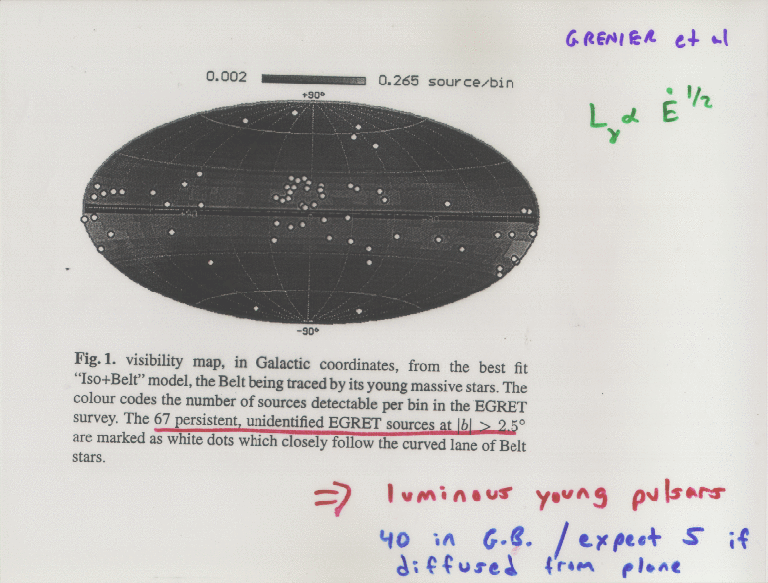 GRENIER et al
0.002 0.265 source/bin
+90°
Lγ ∝ Ė^1/2
-90°
Fig. 1. visibility map, in Galactic coordinates, from the best fit
“Iso+Belt” model, the Belt being traced by its young massive stars. The
colour codes the number of sources detectable per bin in the EGRET
survey. The 67 persistent, unidentified EGRET sources at |b| > 2.5°
are marked as white dots which closely follow the curved lane of Belt
stars.
⇒ luminous young pulsars
40 in G.B. / expect 5 if
diffused from plane